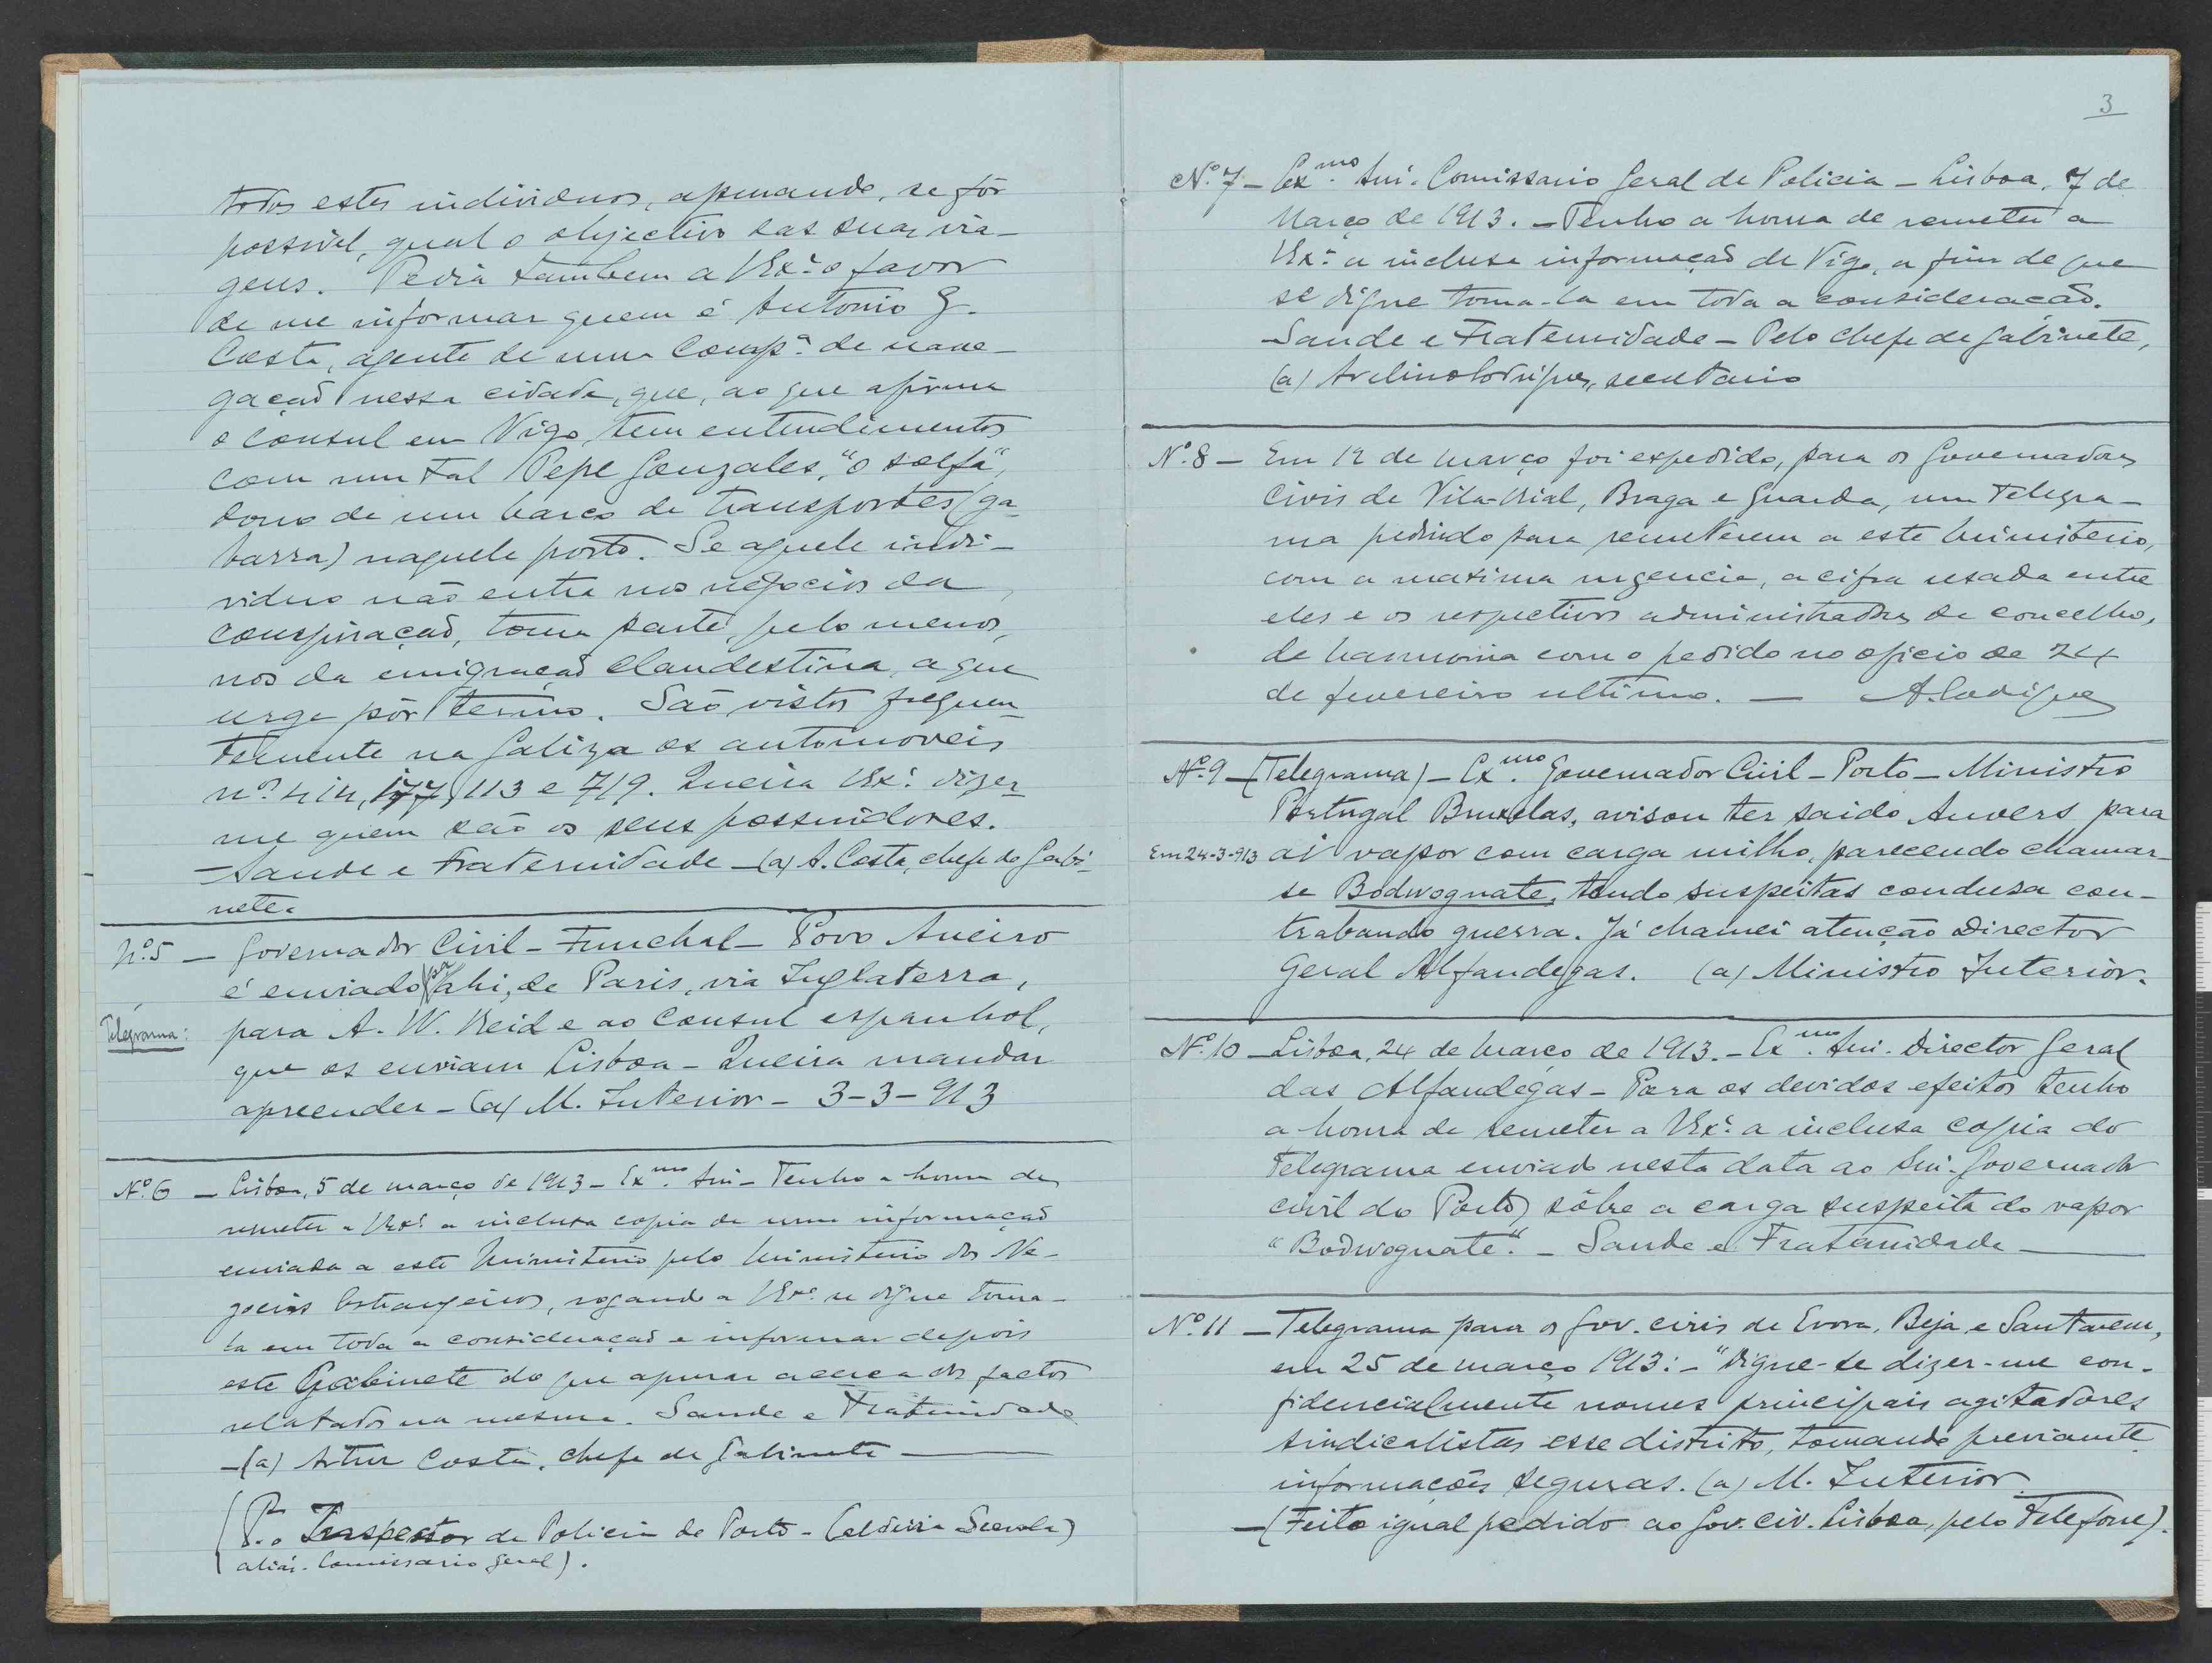 todos estes individuos, apurando, se fôr
possivel, qual o objectivo das suas via-
gens. Pedia tambem a V. Ex.ª o favor
de me informar quem é Antonio G.
Costa, agente de uma Comp.ª de nave-
gação nessa cidade, que, ao que afirma
o consul em Vigo, tem entendimentos
com um tal Pepe Gonzales, "o solfa",
dono de um barco de transportes (ga-
barra) naquele porto. Se aquele indi-
viduo não entra nos negocios da
conspiração, toma parte, pelo menos,
nos da emigração clandestina, a que
urge pôr termo. São vistos frequen-
temente na Galiza os automoveis
n.os 414, 177, 113 e 719. Queira V. Ex.ª dizer-
me quem são os seus possuidores.
-Saude e Fraternidade - (a) A. Costa, chefe do Gabi-
nete.
N.º 5 - Governador Civil - Funchal - Povo Aveiro
é enviado pª ahi, de Paris, via Inglaterra,
Telegrama: para A. W. Reid e ao consul espanhol,
que os enviam Lisboa - Queira mandar
apreender - (a) M. Interior - 3-3-913
N.º 6 - Lisboa, 5 de março de 1913 - Ex.mo Snr. - Tenho a honra de
remeter a V. Ex.ª a inclusa copia de uma informação
enviada a este Ministerio pelo Ministerio dos Ne-
gocios Estrangeiros, rogando a V. Ex.ª se digne toma-
la em toda a consideração e informar depois
este Gabinete do que apurar acerca dos factos
relatados na mesma. Saude e Fraternidade
- (a) Artur Costa, chefe de Gabinete
(P.º Inspector de Policia do Porto - Caldeira Scevola)
aliás - Comissario Geral).
3
N.º 7 - Ex.mo Snr. Comissario Geral de Policia - Lisboa, 7 de
Março de 1913. - Tenho a honra de remeter a
V. Ex.ª a inclusa informação de Vigo, a fim de que
se digne toma-la em toda a consideração.
Saude e Fraternidade - Pelo chefe de gabinete,
(a) Avelino Rodrigues, secretario
N.º 8 - Em 12 de março foi expedido, para os Governadores
Civis de Vila-Rial, Braga e Guarda, um telegra-
ma pedindo para remeterem a este Ministerio,
com a maxima urgencia, a cifra usada entre
eles e os respectivos administradores de concelho,
de harmonia com o pedido no oficio de 24
de fevereiro ultimo. - A. Rodrigues
N.º 9 - (Telegrama) - Ex.mo Governador Civil - Porto - Ministro
Portugal Bruxelas, avisou ter saido Anvers para
Em 24-3-913 aí vapor com carga milho, parecendo chamar-
se Bodwognate, tendo suspeitas condusa con-
trabando guerra. Já chamei atenção Director
Geral Alfandegas. (a) Ministro Interior.
N.º 10 - Lisboa, 24 de Março de 1913. - Ex.mo Snr. Director Geral
das Alfandegas - Para os devidos efeitos tenho
a honra de remeter a V. Ex.ª a inclusa copia do
telegrama enviado nesta data ao Snr. Governador
civil do Porto, sôbre a carga suspeita do vapor
"Bodwognate". - Saude e Fraternidade
N.º 11 - Telegrama para os Gov. civis de Evora, Beja e Santarem,
em 25 de março 1913: - "Digne-se dizer-me con-
fidencialmente nomes principais agitadores
sindicalistas esse distrito, tomando previamte
informações seguras. (a) M. Interior
- (Feito igual pedido ao Gov. civ. Lisboa, pelo telefone).